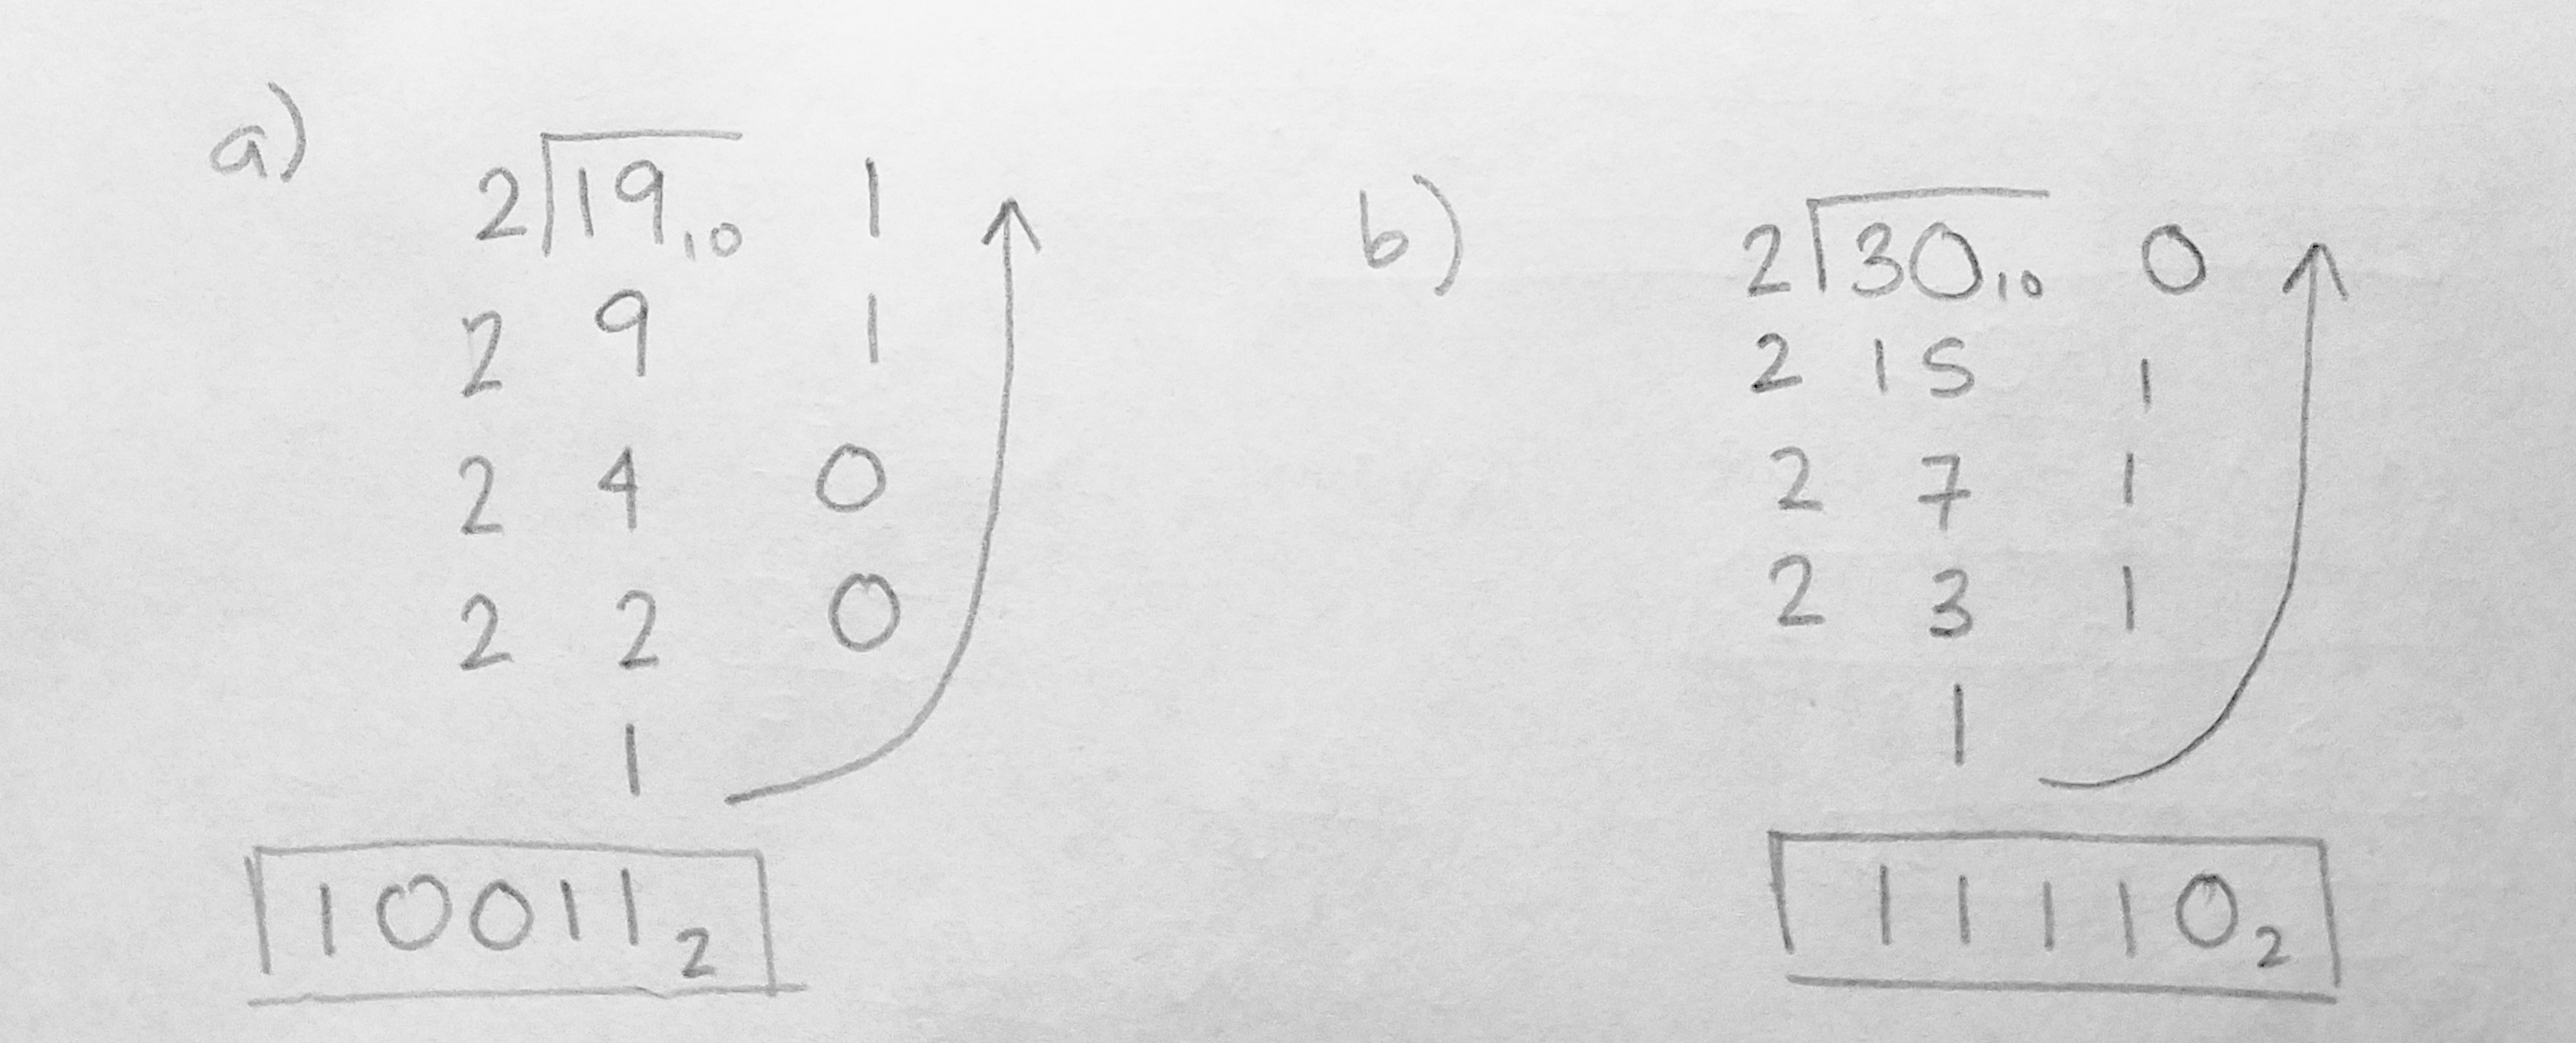 a)
2 19₁₀ 1
2 9 1
2 4 0
2 2 0
1
10011₂
b)
2 30₁₀ 0
2 15 1
2 7 1
2 3 1
1
11110₂